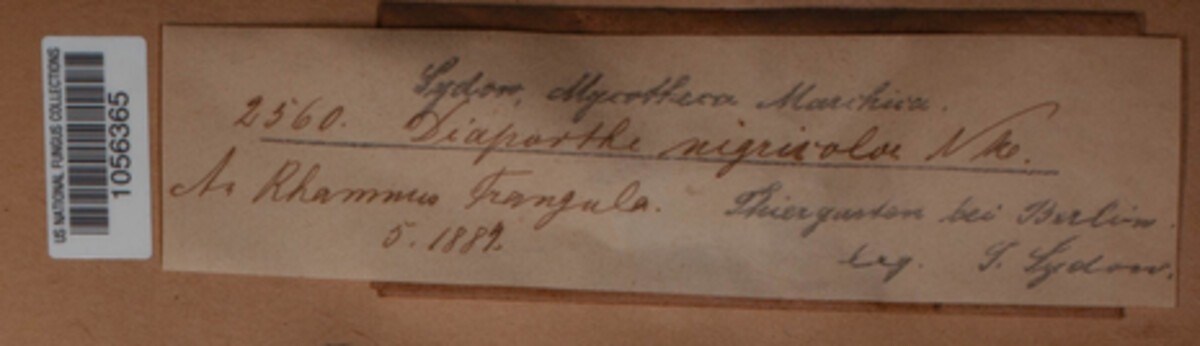 US NATIONAL FUNGUS COLLECTIONS
1056365
Sydow, Mycotheca Marchica.
2560. Diaporthe nigricolor Nke.
An Rhamnus Frangula. Thiergarten bei Berlin.
5. 1889. leg. P. Sydow.